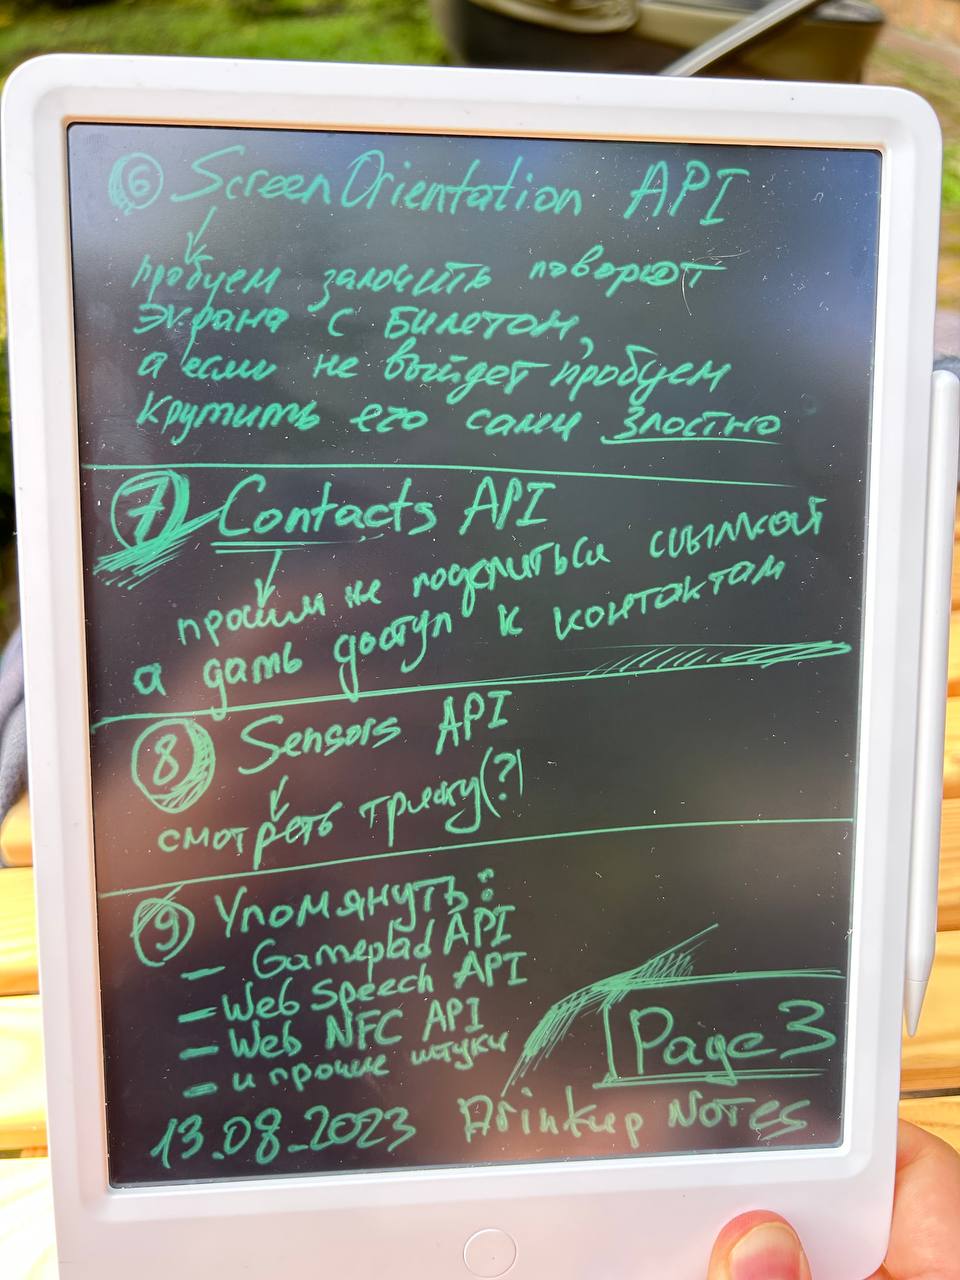 6 ScreenOrientation API
пробуем залочить поворот
экрана с билетом,
а если не выйдет пробуем
крутить его сами злостно
7 Contacts API
просим не поделиться ссылкой
а дать доступ к контактам
8 Sensors API
смотреть тряску(?)
9 Упомянуть:
- Gamepad API
- Web Speech API
- Web NFC API
- и прочие штуки
Page 3
13.08.2023 Drinkup Notes